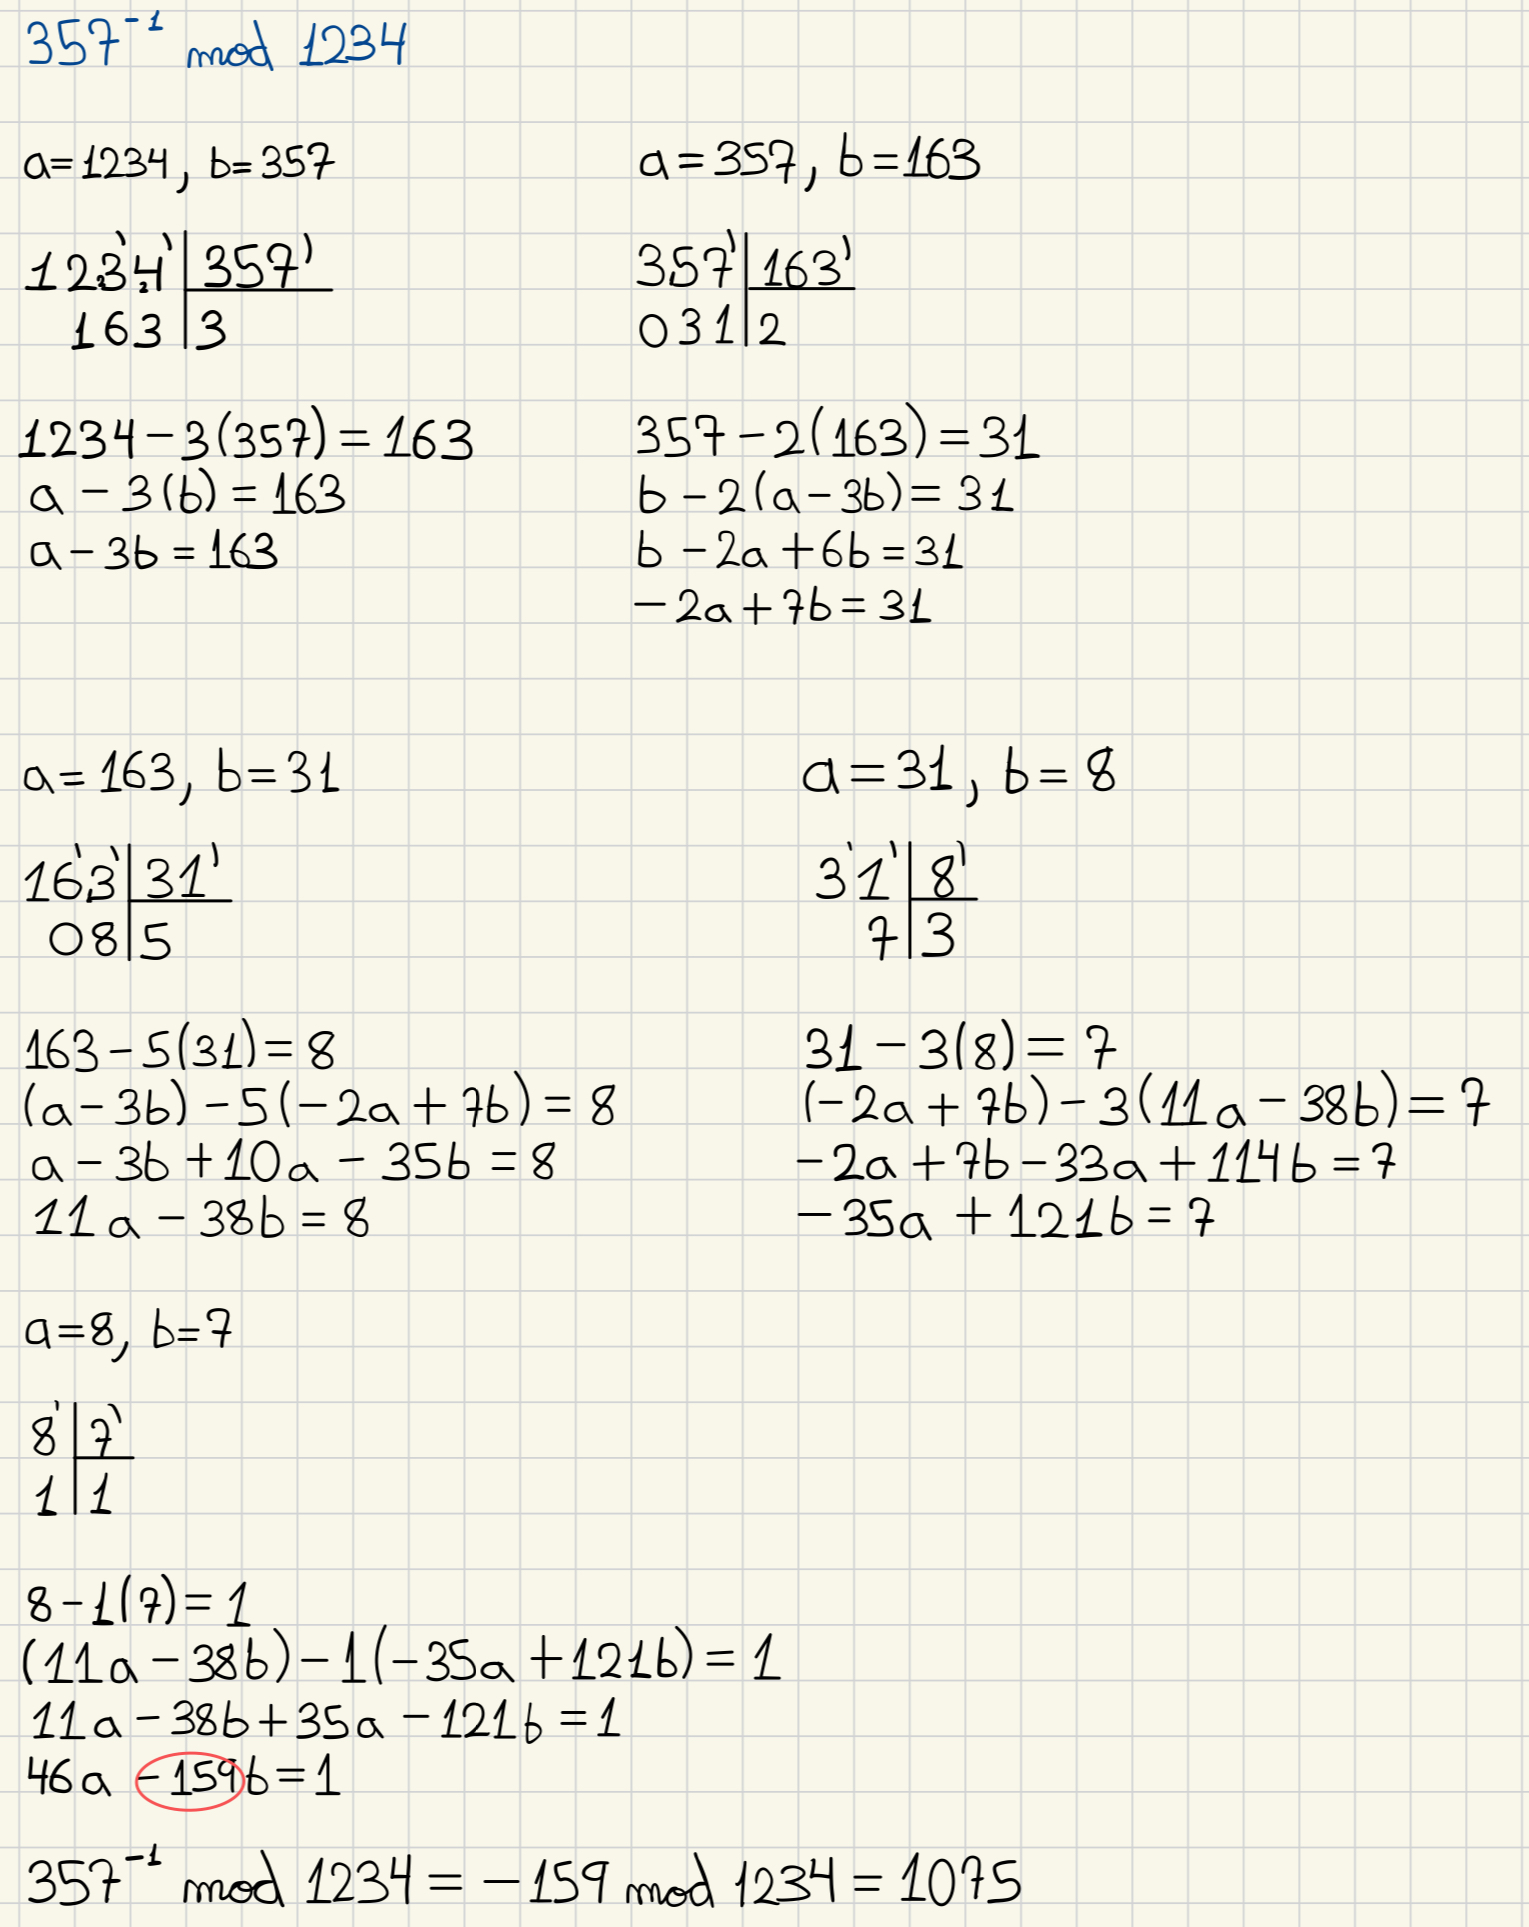 357⁻¹ mod 1234
a=1234, b=357
1234 | 357
163 | 3
1234-3(357)=163
a-3(b)=163
a-3b=163
a=357, b=163
357 | 163
031 | 2
357-2(163)=31
b-2(a-3b)=31
b-2a+6b=31
-2a+7b=31
a=163, b=31
163 | 31
08 | 5
163-5(31)=8
(a-3b)-5(-2a+7b)=8
a-3b+10a-35b=8
11a-38b=8
a=31, b=8
31 | 8
7 | 3
31-3(8)=7
(-2a+7b)-3(11a-38b)=7
-2a+7b-33a+114b=7
-35a+121b=7
a=8, b=7
8 | 7
1 | 1
8-1(7)=1
(11a-38b)-1(-35a+121b)=1
11a-38b+35a-121b=1
46a-159b=1
357⁻¹ mod 1234=-159 mod 1234=1075